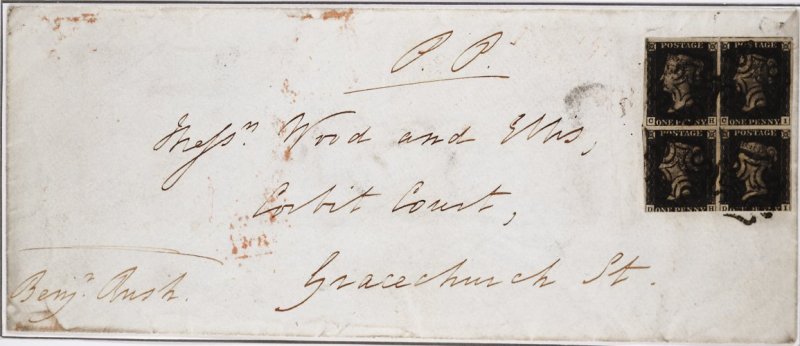 P. P.
Messrs. Wood and Ellis,
Corbit Court,
Gracechurch St.
Benjn. Rush.
POSTAGE POSTAGE
C ONE PENNY H C ONE PENNY I
POSTAGE POSTAGE
D ONE PENNY H D I